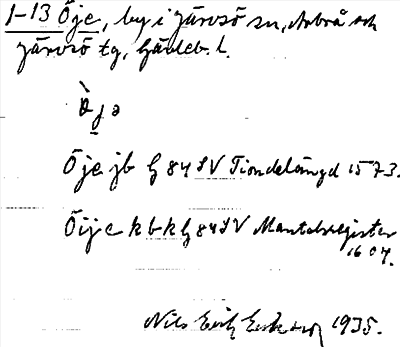 1-13 Öje, by i Järvsö sn, Arbrå och
Järvsö tg, Gävleb. l.
Öje jb G 84 SV Tiondelängd 1573.
Öije k b k G 84 SV Mantalsregister
1604.
Nils Erik Eriksson 1935.